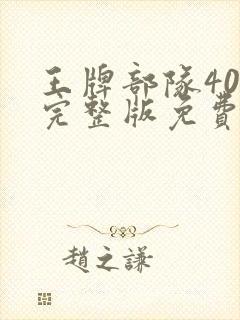 王牌部隊40
完整版免費
趙之謙